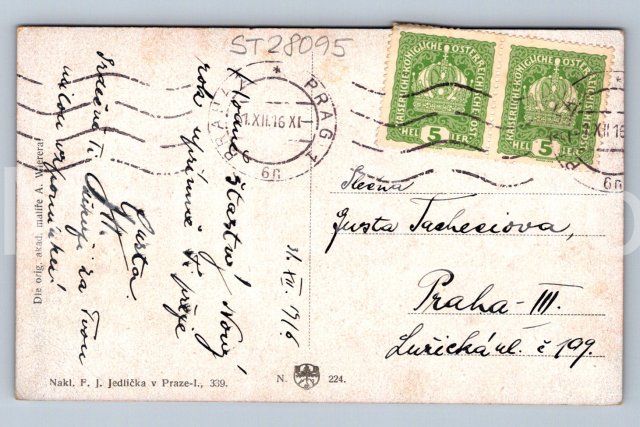 ST28095
PRAG 1
1.XII.16 XI
6n
KAISERLICHE KÖNIGLICHE ÖSTERREICHISCHE POST
HEL 5 LER
KAISERLICHE KÖNIGLICHE ÖSTERREICHISCHE POST
HEL 5 LER
XII 16
6n
štastný Nový
rok upřímně Ti přeje
Gusta.
děkuji za Tvou
milou vzpomínku!
31. XII. 1916
Slečna
Gusta Tacheciova,
Praha-III.
Lužická ul. č 199.
Die orig. akad. malíře A. Wierera.
Nakl. F. J. Jedlička v Praze-I., 339.
N. 224.